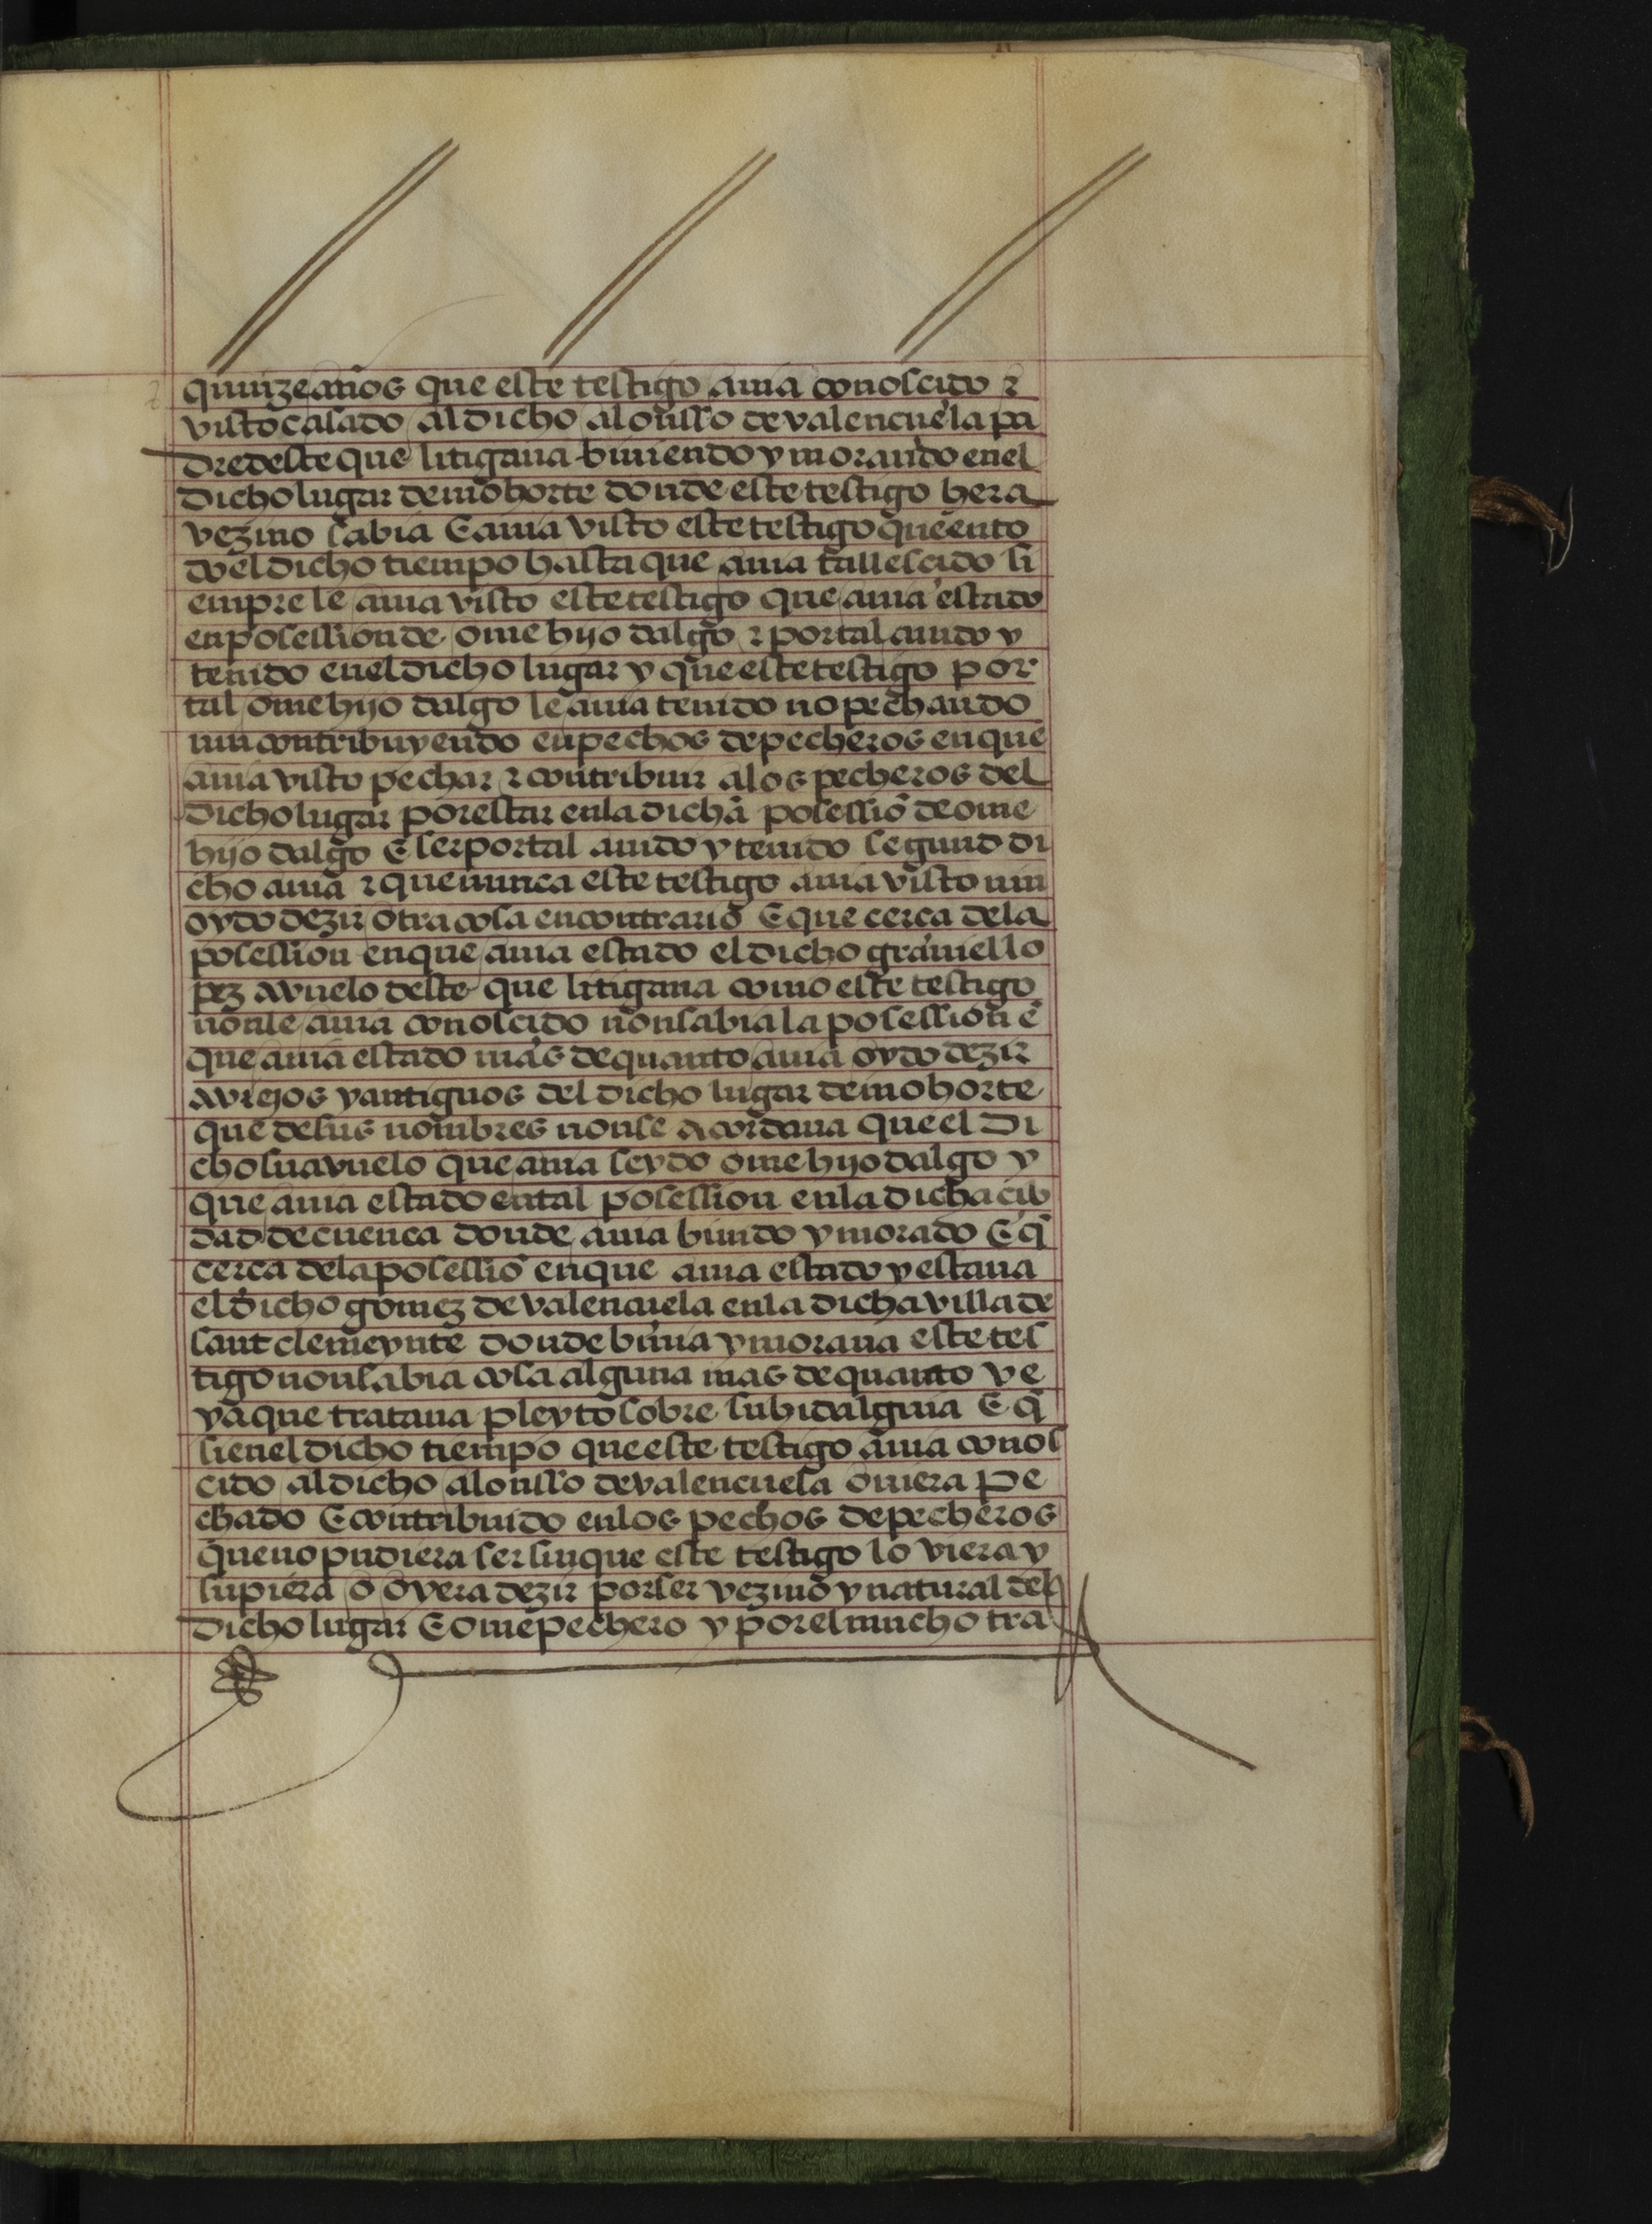 quinze años que este testigo avia conoscido ⁊
visto casado al dicho alonsso de valençuela pa
dre deste que litigava biviendo y morando en el
dicho lugar de mohorte donde este testigo hera
vezino sabia E avia visto este testigo que en to
do el dicho tiempo hasta que avia fallescido si
empre le avia visto este testigo que avia estado
en posession de ome hijo dalgo ⁊ por tal avido y
tenido en el dicho lugar y que este testigo por
tal ome hijo dalgo le avia tenido no pechando
nin contribuyendo en pechos de pecheros en que
avia visto pechar ⁊ contribuir a los pecheros del
dicho lugar por estar en la dicha posessiõ de ome
hijo dalgo E ser por tal avido y tenido segund di
cho avia ⁊ que nunca este testigo avia visto nin
oydo dezir otra cosa en contrario E que cerca de la
posession en que avia estado el dicho graviel lo
pez avuelo deste que litigava como este testigo
non le avia conoscido non sabia la posession ẽ
que avia estado mas de quanto avia oydo dezir
a viejos y antiguos del dicho lugar de mohorte
que de sus nombres non se acordava que el di
cho su avuelo que avia seydo ome hijo dalgo y
que avia estado en tal posession en la dicha cib
dad de cuenca donde avia bivido y morado E q̃
cerca de la posessiõ en que avia estado y estava
el dicho gomez de valençuela en la dicha villa de
sant clemeynte donde bivia y morava este tes
tigo non sabia cosa alguna mas de quanto ve
ya que tratava pleyto sobre su hidalguia E q̃
si en el dicho tiempo que este testigo avia conos
cido al dicho alonsso de valençuela oviera pe
chado E contribuido en los pechos de pecheros
que no pudiera ser sin que este testigo lo viera y
supiera o oyera dezir por ser vezino y natural del
dicho lugar E ome pechero y por el mucho tra